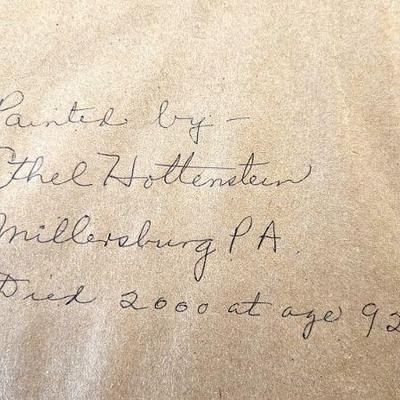 Painted by -
Ethel Hottenstein
Millersburg PA.
Died 2000 at age 92